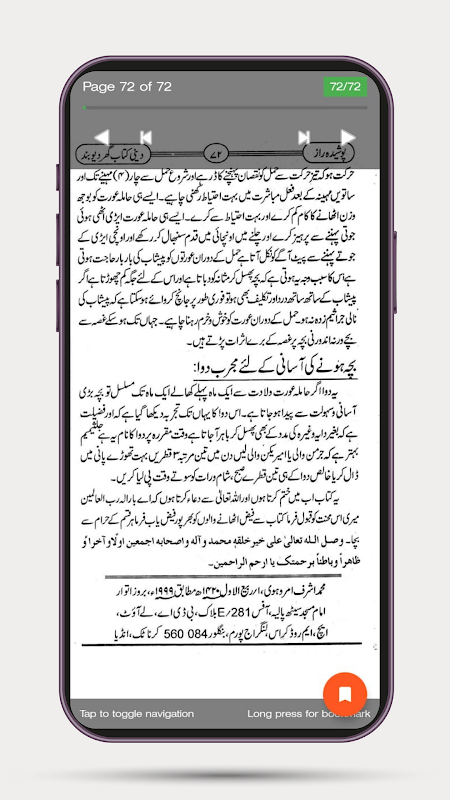 Page 72 of 72
72/72
پوشیدہ راز
۷۲
دینی کتاب گھر دیوبند
حرکت ہو کہ تیز حرکت سے حمل کو نقصان پہنچنے کا ڈر ہے اور شروع حمل سے چار (۴) مہینے تک اور
ساتویں مہینہ کے بعد فعل مباشرت میں بہت احتیاط رکھنی چاہیے۔ ایسے ہی حاملہ عورت کو بوجھ
وزن اٹھانے کا کام کم کرے اور بہت احتیاط سے کرے۔ ایسے ہی حاملہ عورت ایڑی اٹھی ہوئی
جوتی پہننے سے پرہیز کرے اور چلنے میں اونچائی میں قدم سنبھال کر رکھے اور اونچی ایڑی کے
جوتے پہننے سے پیٹ آگے کو نکل آتا ہے حمل کے دوران عورتوں کو پیشاب کی بار بار حاجت ہوتی
ہے اس کا سبب وجہ یہ ہوتی ہے کہ بچہ پھسل کر مثانہ کو دباتا ہے اور اس کے لئے جگہ کم چھوڑتا ہے اگر
پیشاب کے ساتھ ساتھ درد اور تکلیف بھی ہو تو فوری طور پر جانچ کروائے ہو سکتا ہے کہ پیشاب کی
نالی جراثیم زدہ نہ ہو۔ حمل کے دوران عورت کو خوش و خرم رہنا چاہیے۔ جہاں تک ہو سکے غصہ سے
بچے ورنہ اندرونی بچہ پر غصہ کے برے اثرات پڑتے ہیں۔
بچہ ہونے کی آسانی کے لئے مجرب دوا:
یہ دوا اگر حاملہ عورت ولادت سے ایک ماہ پہلے کھالے ایک ماہ تک مسلسل تو بچہ بڑی
آسانی و سہولت سے پیدا ہو جاتا ہے۔ اس دوا کا یہاں تک تجربہ دیکھا گیا ہے کہ اور فضیلت
ہے کہ بغیر دایہ وغیرہ کی مدد کے بھی پھسل کر باہر آ جاتا ہے وقت مقررہ پر دوا کا نام یہ ہے جلشیمیم
بہتر ہے کہ جرمن والی یا امیریکن والی لیں دن میں تین مرتبہ ۳ قطریں بہت تھوڑے پانی میں
ڈال کر یا خالص دوا کے ہی تین قطرے صبح، شام و رات کو سوتے وقت پی لیا کریں۔
یہ کتاب اب میں ختم کرتا ہوں اور اللہ تعالیٰ سے دعاء کرتا ہوں کہ اے بار الٰہ رب العالمین
میری اس محنت کو قبول فرما کتاب سے فیض اٹھانے والوں کو بھر پور فیض یاب فرما ہر قسم کے حرام سے
بچا۔ وصل اللہ تعالیٰ علی خیر خلقہ محمد و آلہ واصحابہ اجمعین اولا وآخرا و
ظاھرا وباطنا برحمتک یا ارحم الراحمین۔
محمد اشرف امروہوی، ربیع الاول ۱۴۲۰ھ مطابق ۱۹۹۹ء، بروز اتوار
امام مسجد سیٹھ پالیہ، آفس 281/E بلاک، بی ڈی اے، لے آؤٹ،
ایچ، ایم روڈ کراس، لنگراج پورم، بنگلور 560 084 کرناٹک، انڈیا
Tap to toggle navigation
Long press for bookmark